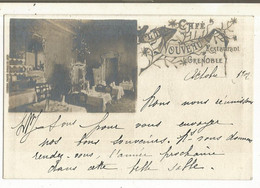 CAFÉ
NOUVEAU
Restaurant
GRENOBLE
Nous nous réunissons
tous pour vous envoyer
nos bons souvenirs. Ns vous donnons
rendez-vous l'année prochaine
dans cette belle salle.